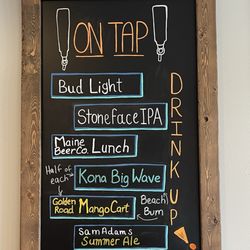 ON TAP
Bud Light
Stoneface IPA
Maine
Beer Co. Lunch
Half of
each
Kona Big Wave
Golden
Road Mango Cart
Beach
Bum
Sam Adams
Summer Ale
DRINK UP